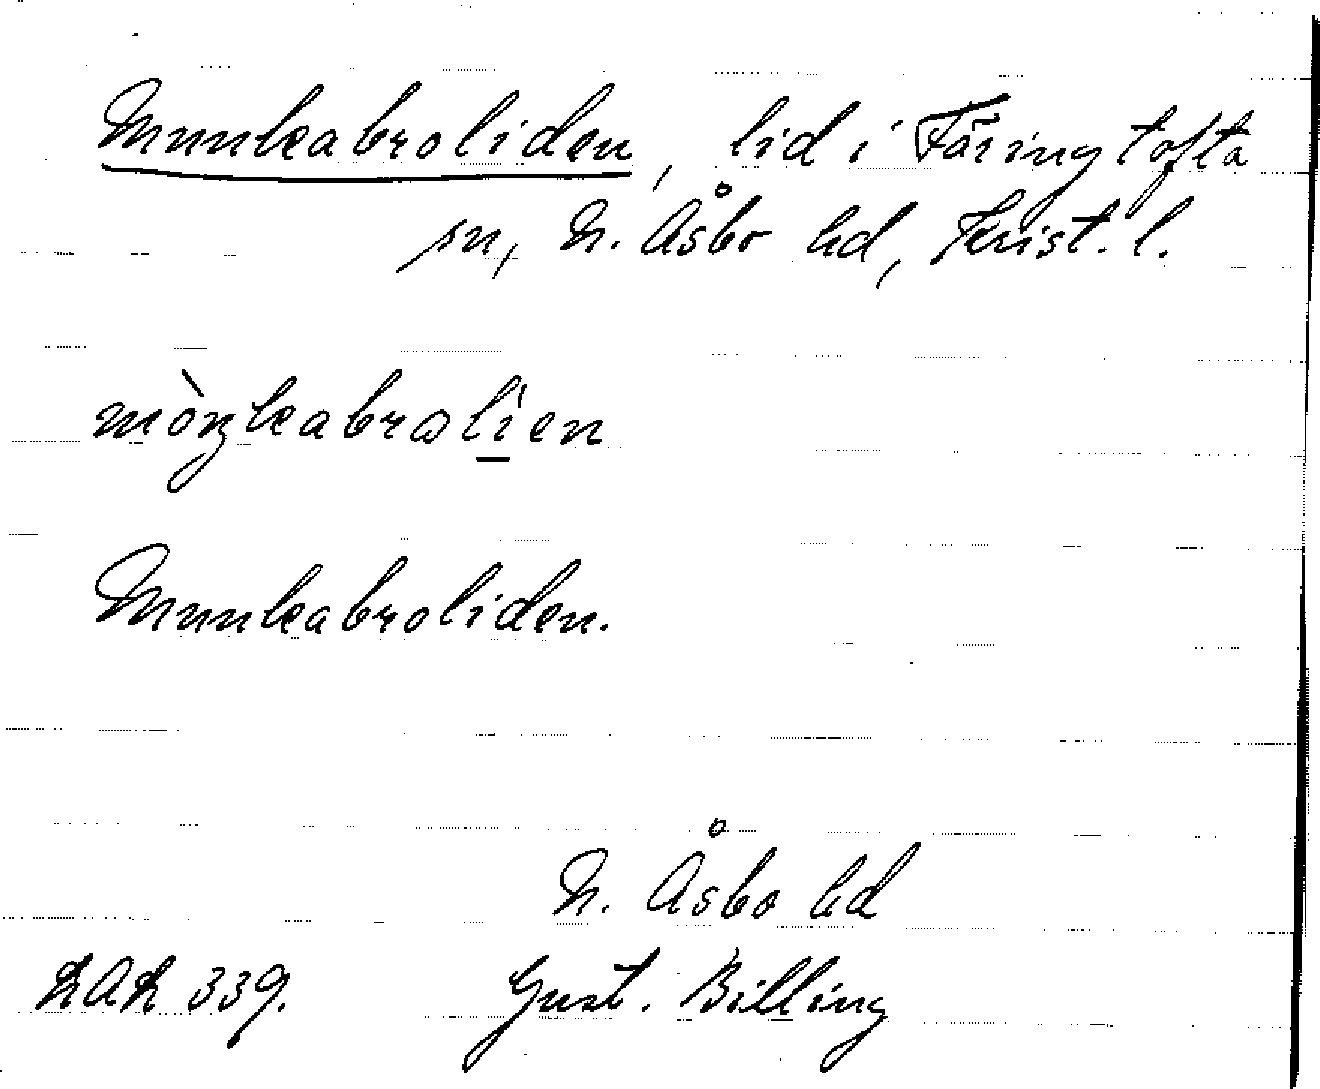 Munkabroliden, lid i Färingtofta
sn, N. Åsbo hd, Krist. l.
mòŋkabrωlien
Munkabroliden.
N. Åsbo hd
LAL 339. Gust. Billing